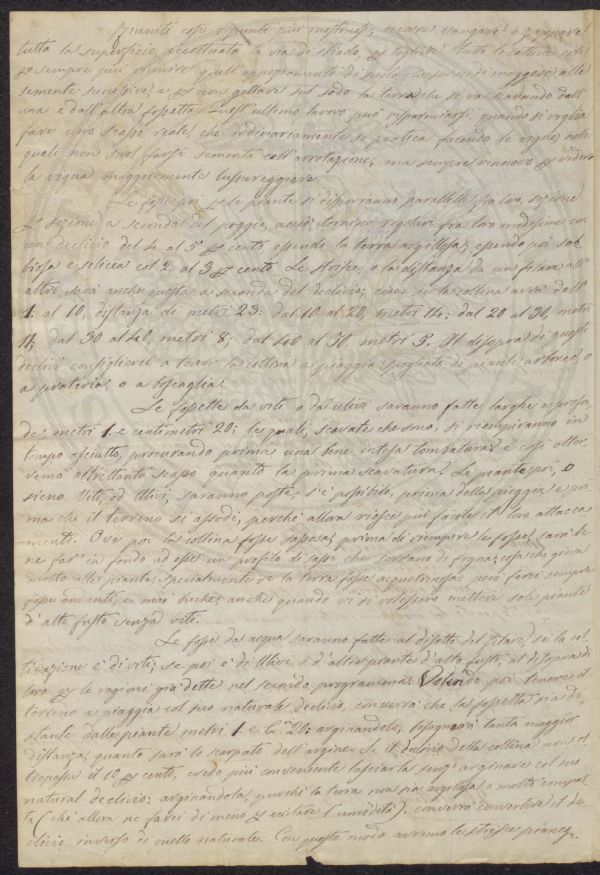 Riuniti così i punti più mostruosi, occorre vangare o zappare
tutta la superficie, eccettuata la via di strado, per togliere tutte le cattive erbe
per sempre più riunire quell'appezzamento di suolo pur servendo di maggese alle
semente successive, e per non gettare sul sodo la terra che si va cavando dall'
una e dall'altra fossetta. Quest'ultimo lavoro può risparmiarsi, quando si voglia
fare uno scasso reale, che ordinariamente si pratica facendo le vigne, nelle
quali non suol farsi sementa coll'arrotazione, ma sempre rinnovo per vedere
la vigna maggiormente lussureggiare.
Le fosse poi per le piante si disporranno parallele fra loro, sezione
per sezione a seconda del poggio, acciò tornino regolari fra loro medesime con
un declivio del 4 al 5 per cento essendo la terra argillosa; essendo poi sab
biosa e silicea col 2 al 3 per cento. Le strisce, o la distanza da un filare all'
altro, sarà anche questa a seconda del declivio; cioè: se la collina avrà dall'
1. al 10, distanza di metri 23: dal 10 al 20, metri 14; dal 20 al 30, metri
11; dal 30 al 40, metri 8; dal 40 al 50, metri 5. Al disopra di questi
declivi consiglierei a tener la collina a piaggia spogliata di piante arboree, o
a prateria, o a boscaglia.
Le fossette da viti o da ulivi saranno fatte larghe e profon
de: metri 1. e centimetri 20; le quali, scavate che sono, si riempiranno in
tempo asciutto, procurando prima una bene intesa tombatura, e così otter
remo altrettanto scasso quanto la prima scavatura. Le piante poi, o
sieno Viti, od Ulivi, saranno poste, s'è possibile, prima della pioggia e pri
ma che il terreno si assodi, perché allora riesce più facile il loro attacca
mento. Ove poi la collina fosse sassosa, prima di riempire le fosse, sarà be
ne far in fondo ad esse un profilo di sassi che servano di fogna; cosa che giova
molto alle piante, specialmente se la terra fosse acquitrinosa: però farei sempre
fosse andanti, e mai buche, anche quando vi si volessero mettere sole piante
d'alto fusto senza viti.
Le fosse da acqua saranno fatte al disotto del filare, se la col
tivazione è di viti; se poi è di Ulivi o d'altre piante d'alto fusto, al disopra di
loro per le ragioni già dette nel secondo programma. Volendo poi tenere il
terreno a piaggia col suo naturale declivio, converrà che la fossetta sia di
stante dalle piante metri 1. e C.m 20; arginandolo, bisognerà tanta maggior
distanza, quanto sarà la scarpata dell'argine. Se il declivio della collina non ol
trepassa il 10 per cento, credo più conveniente lasciarla senz'arginare col suo
natural declivio: arginandola, purché la terra non sia argillosa o molto compat
ta (ché allora ne farei di meno per evitare l'umidità), converrà convertire il de
clivio inverso di quello naturale. Con questo modo avremo le strisce pianeg-